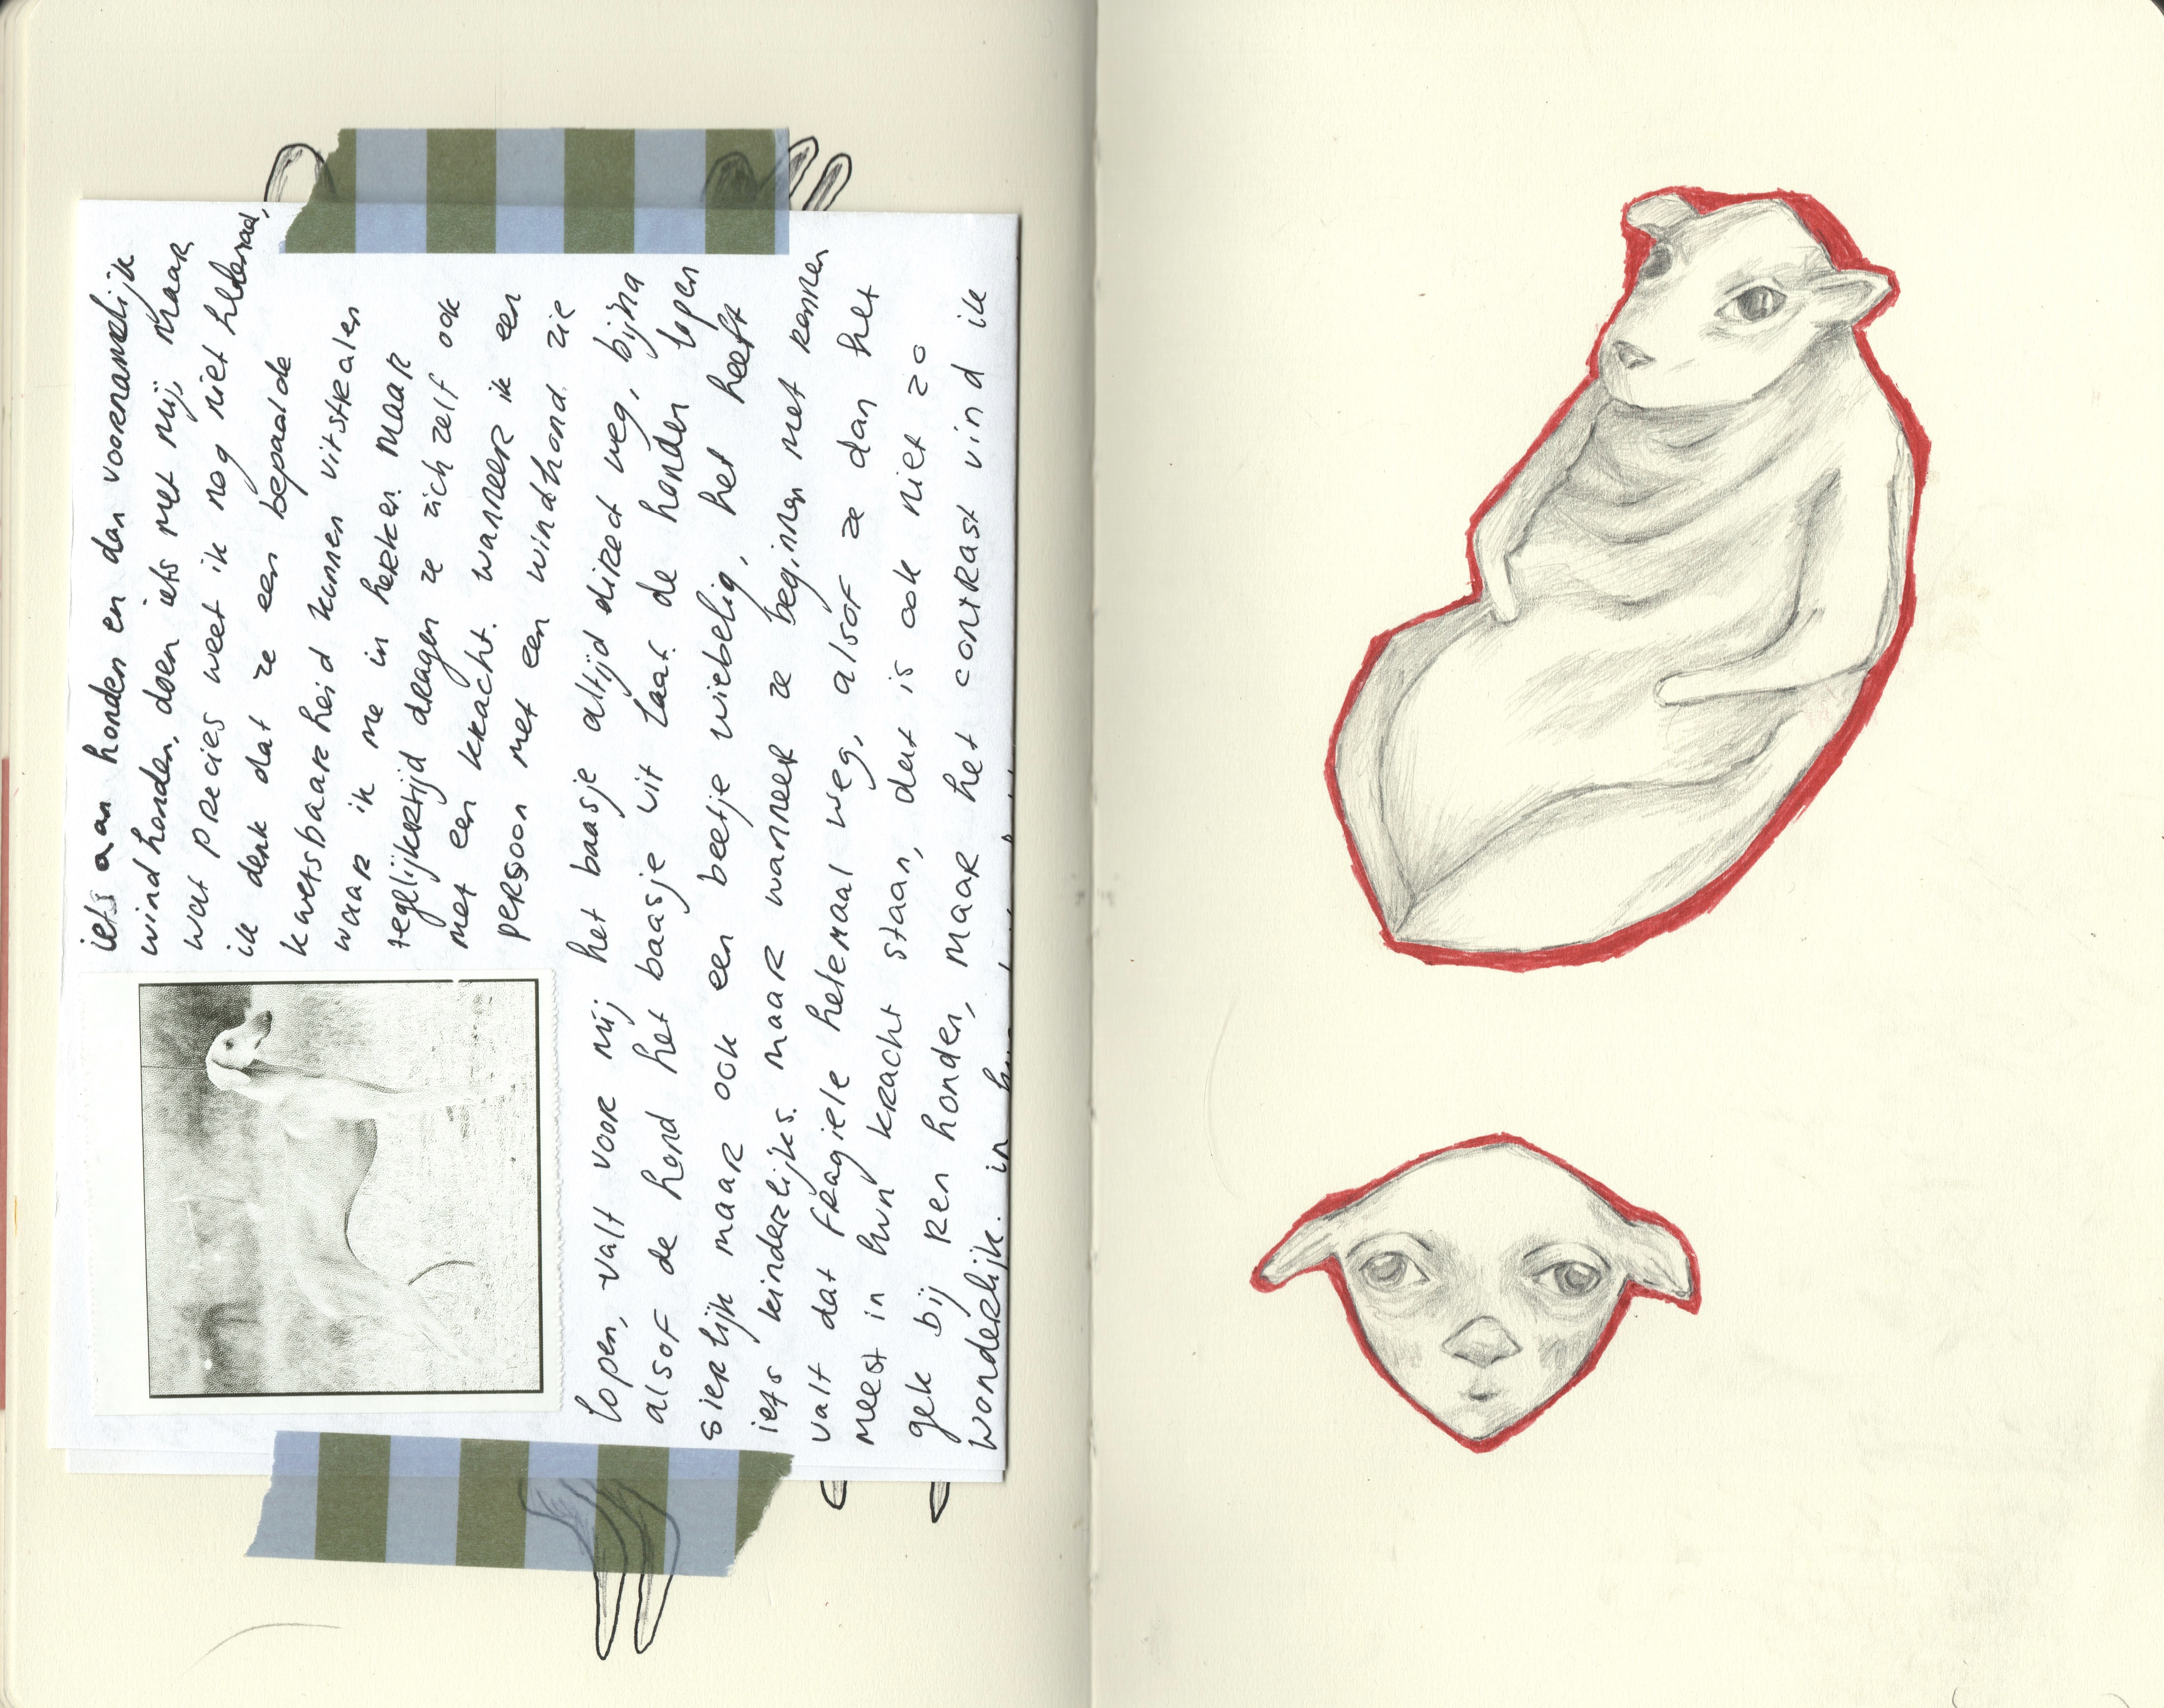 iets aan honden en dan voornamelijk
windhonden, doen iets met mij, maar
wat precies weet ik nog niet helemaal,
ik denk dat ze een bepaalde
kwetsbaarheid kunnen uitstralen
waar ik me in herken. maar
tegelijkertijd dragen ze zich zelf ook
met een kracht. wanneer ik een
persoon met een windhond zie
lopen, valt voor mij het baasje altijd direct weg, bijna
alsof de hond het baasje uit laat. de honden lopen
sierlijk maar ook een beetje wiebelig, het heeft
iets kinderlijks. maar wanneer ze beginnen met rennen
valt dat fragiele helemaal weg, alsof ze dan het
meest in hun kracht staan, dat is ook niet zo
gek bij ren honden, maar het contrast vind ik
wonderlijk. in